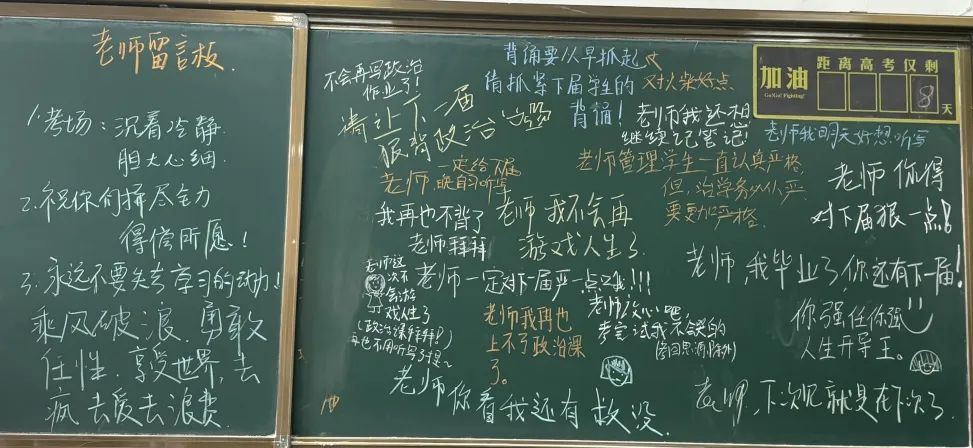 老师留言板
1.考场：沉着冷静
胆大心细.
2.祝你们拼尽全力
得偿所愿！
3.永远不要失去学习的动力!
乘风破浪、勇敢
任性、享受世界、去
疯去爱去浪费.
不会再写政治
作业了!
背诵要从早抓起
请抓紧下届学生的
背诵！
对以染好点
请让下一届
狠背政治
老师我还想
继续记笔记
加油
GaoKao! Fighting!
距离高考仅剩
8
天
老师我明天好想听写
一定给下届
老师,晚自习听写
老师管理学生一直认真严格,
但,治学务必从严
要更加严格.
老师你得
对下届狠一点!
我再也不背了
老师拜拜
老师我不会再
游戏人生了
老师,我毕业了,你还有下一届!
老师这
次不
会游
戏人生了
(政治课拜拜!)
再也不用听写了捏~
老师一定对下届严一点哦!!!
老师我再也
上不了政治课
了。
老师放心吧,
考室试我不会哭的
你强任你强
人生开导王。
老师你看我还有救没
老师,下次见就是在下次了.